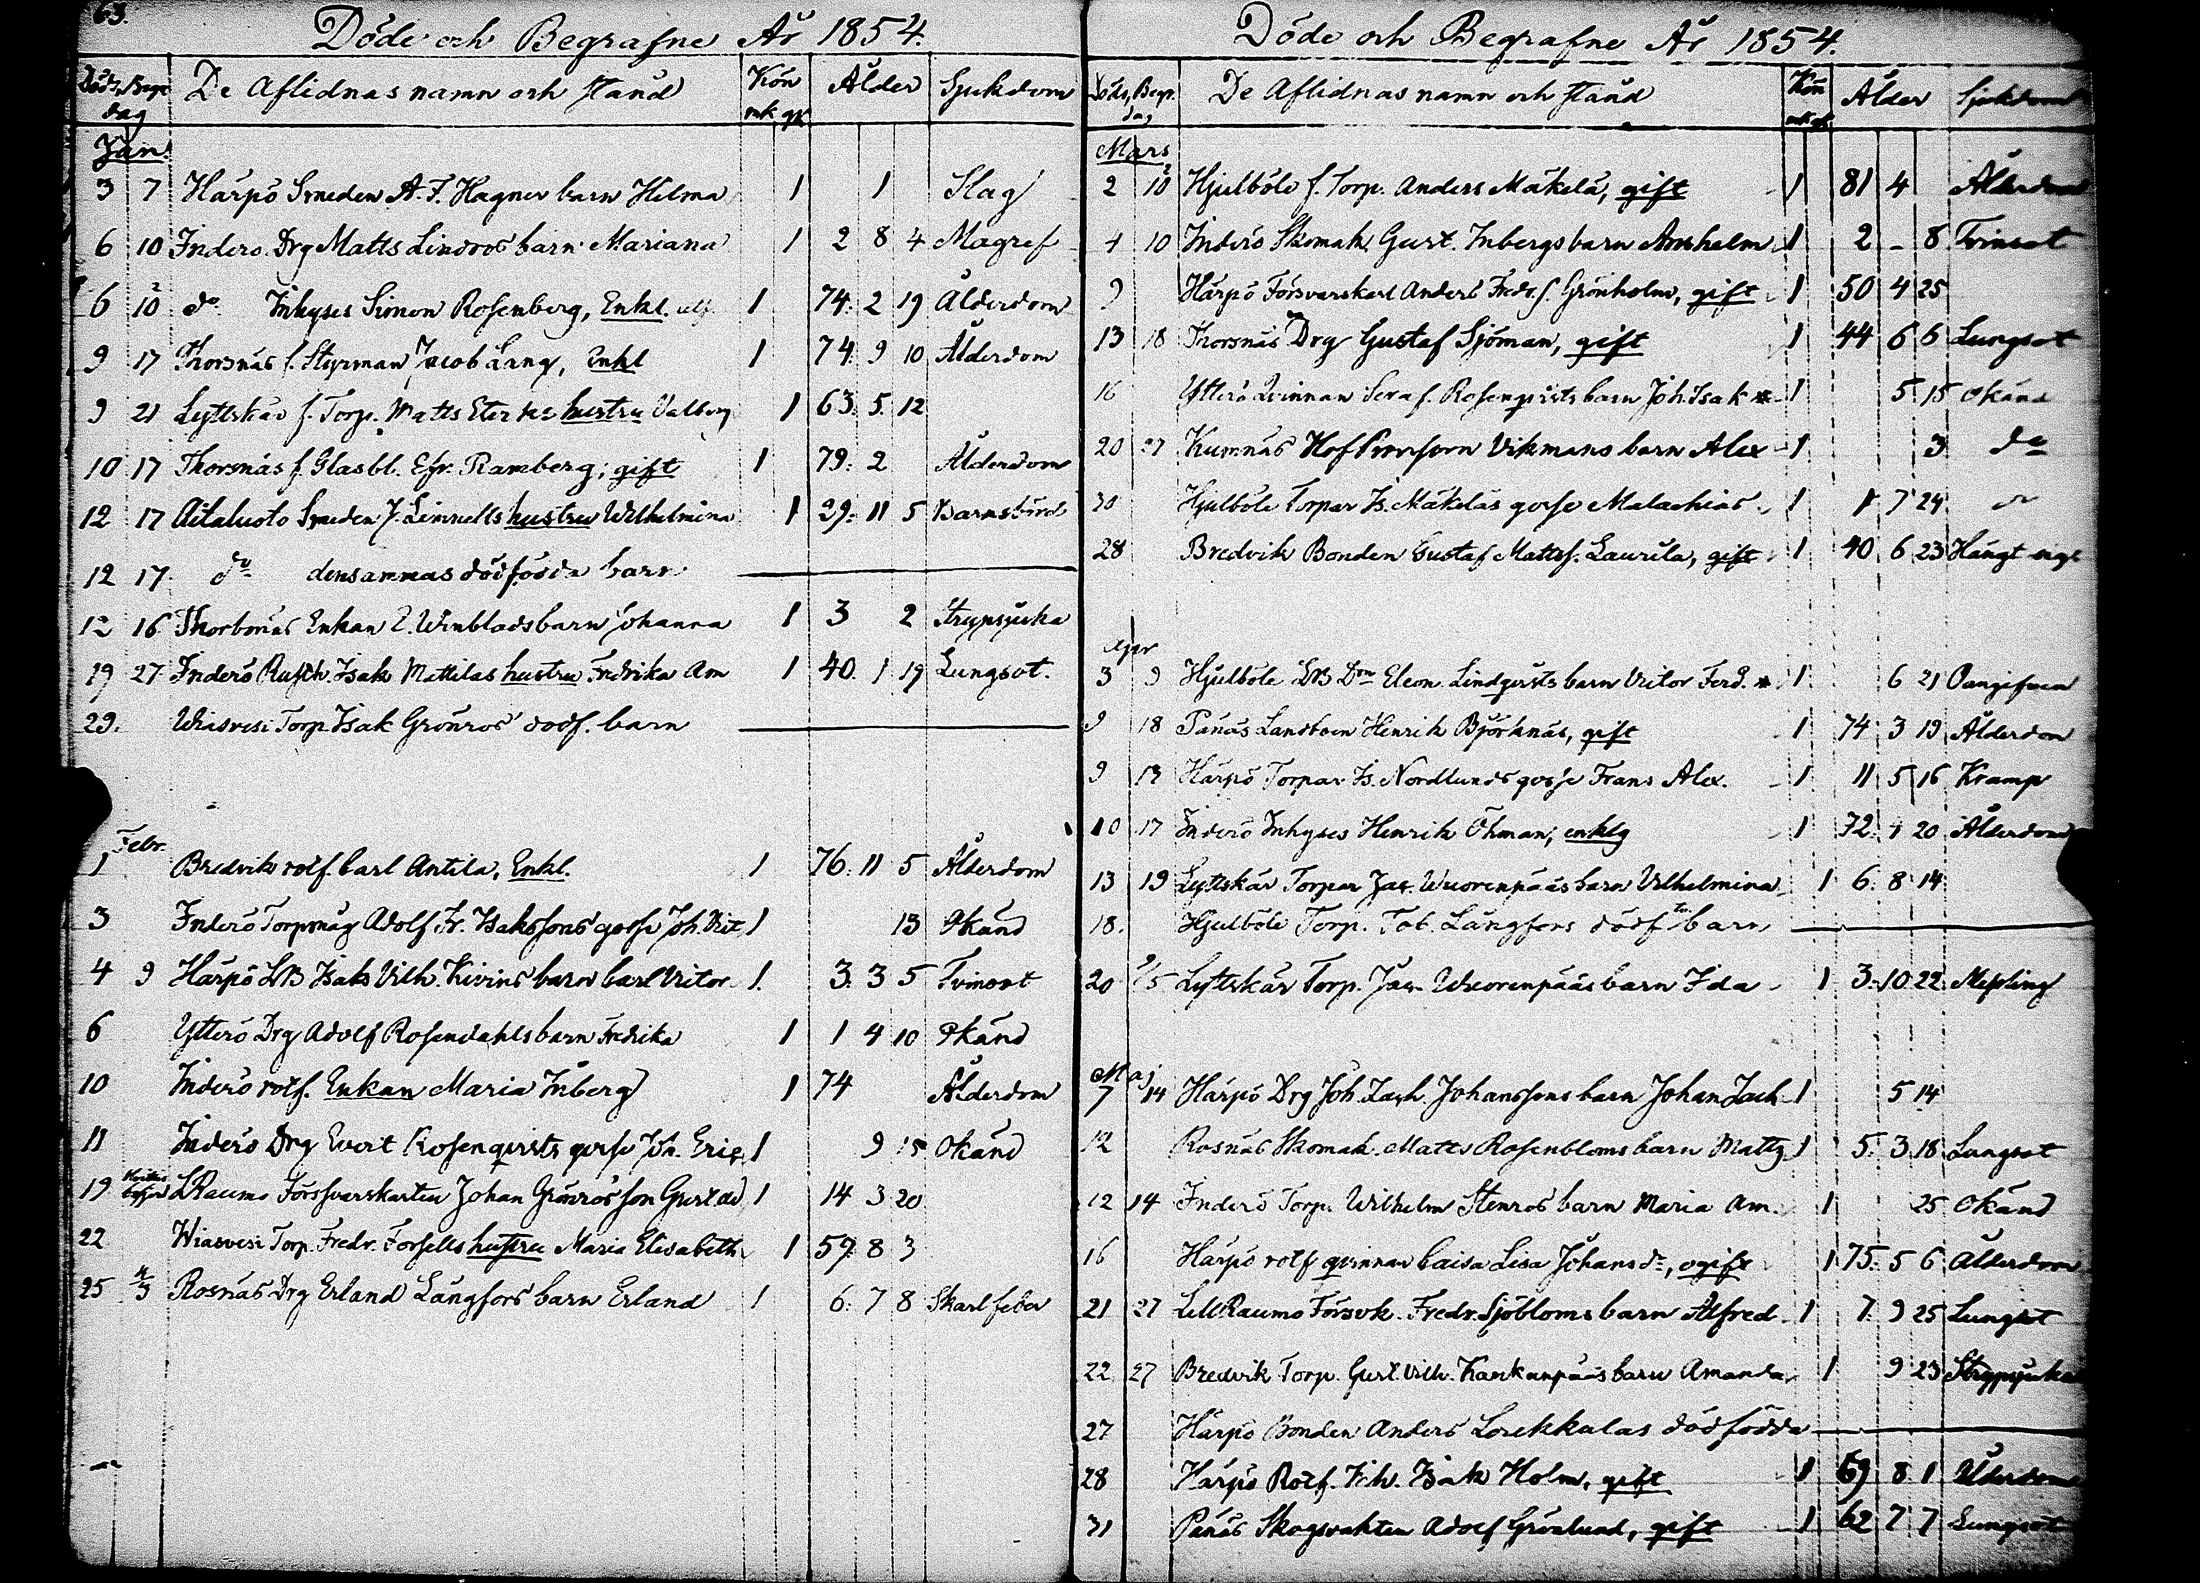 63.
Döde och Begrafne År 1854.
Döds Begr. dag De Aflidnas namn och stånd Kön mk qk Ålder Sjukdom
Jan.
3 7 Härpö Smeden A. F. Hagner barn Hilma 1 1 Slag
6 10 Inderö Drg Matts Lindroos barn Mariana 1 2 8 4 Magref
6 10 do Inhyses Simon Rosenberg, Enkl. 1 74 2 19 Ålderdom
9 17 Thorsnäs f. Styrman Jacob Lang, Enkl 1 74 9 10 Ålderdom
9 21 Lyttskär f. Torp. Matts hustru Valborg 1 63 5 12
10 17 Thorsnäs f. Glasbl. Efr. Ramberg, gift 1 79 2 Ålderdom
12 17 Aitaluoto Smeden J. Linnells hustru Wilhelmina 1 29 11 5 Barnsbörd
12 17 do densammas dödfödda barn
12 16 Thorbonäs Enkan Winblads barn Johanna 1 3 2 Strypsjuka
19 27 Inderö Rusth. Isak Mattilas hustru Fredrika Am 1 40 1 19 Lungsot.
29. Wiasvesi Torp. Isak Grönroos dödf. barn
Febr.
1 Bredvik rotf. Carl Antila, Enkl. 1 76 11 5 Ålderdom
3 Inderö Torpmåg Adolf Fr. Isakssons gosse Joh. Vict 1 13 Okänd
4 9 Härpö LB Isak Vilh. Kivins barn Carl Victor 1 3 3 5 Tvinsot
6 Ytterö Drg Adolf Rosendahls barn Fredrika 1 1 4 10 Okänd
10 Inderö rotf. Enkan Maria Inberg 1 74 Ålderdom
11 Inderö Drg Evert Rosenqvists gosse Joh. Eric 1 9 15 Okänd
19 L Raumo Försvarskarlen Johan Grönroos son Gust. 1 14 3 20
22 Wiasvesi Torp. Fredr. Forsells hustru Maria Elisabeth 1 59 8 3
25 4/3 Rosnäs Drg Erland Långfors barn Erland 1 6 7 8 Skarl feber
Döde och Begrafne År 1854.
Döds, Begr. dag De Aflidnas namn och stånd Kön mk qk Ålder Sjukdom
Mars
2 10 Hjulböle f. Torp. Anders Mäkelä, gift 1 81 4 Ålderdom
4 10 Inderö Skomak. Gust. Inbergs barn Anshelm 1 2 - 8 Tvinsot
9 Härpö Försvarskarl Anders Fredr. s. Grönholm, gift 1 50 4 25
13 18 Thorsnäs Drg Gustaf Sjöman, gift 1 44 6 6 Lungsot
16 Ytterö Qvinnan Seraf. Rosenqvists barn Joh. Isak * 1 5 15 Okänd
20 27 Kumnäs Vikmans barn Alex 1 3 do
20 Hjulböle Torpar Is. Mäkeläs gosse Malachias 1 1 7 24 do
28 Bredvik Bonden Gustaf Mattss. Laurila, gift 1 40 6 23 Hängt sig
Apr
3 9 Hjulböle LB Dtr Eleon. Lindqvists barn Victor Ferd. * 1 6 21
9 18 Pånäs Landboen Henrik Björknäs, gift 1 74 3 19 Ålderdom
9 13 Härpö Torpar Is. Nordlunds gosse Frans Alex. 1 11 5 16 Kramp
10 17 Inderö Inhyses Henrik Öhman, enklg 1 72 4 20 Ålderdom
13 19 Lyttskär Torpar Jac. Wuorenpääs barn Vilhelmina 1 6 8 14
18. Hjulböle Torp. Tob. Långfors dödf barn
20 Lyttskär Torp. Jac. Wuorenpääs barn Ida 1 3 10 22 Messling
Maj
7 14 Härpö Drg Joh. Zach. Johanssons barn Johan Zach 1 5 14
12 Rosnäs Skomak. Matts Rosenbloms barn Matts 1 5 3 18 Lungsot
12 14 Inderö Torp. Wilhelm Stenroos barn Maria Am. 1 25 Okänd
16 Härpö rotf qvinnan Caisa Lisa Johansdr, ogift 1 75 5 6 Ålderdom
21 27 Lill Raumo Försvk. Fredr. Sjöbloms barn Alfred 1 7 9 25 Lungsot
22 27 Bredvik Torp. Gust. Vilh. Kankanpääs barn Amanda 1 9 23 Strypsjuka
27 Härpö Bonden Anders Lorekkalas dödfödda
28 Härpö Rotf. Isak Holm, gift 1 69 8 1 Ålderdom
31 Pånäs Skogvakten Adolf Grönlund, gift 1 62 7 7 Lungsot